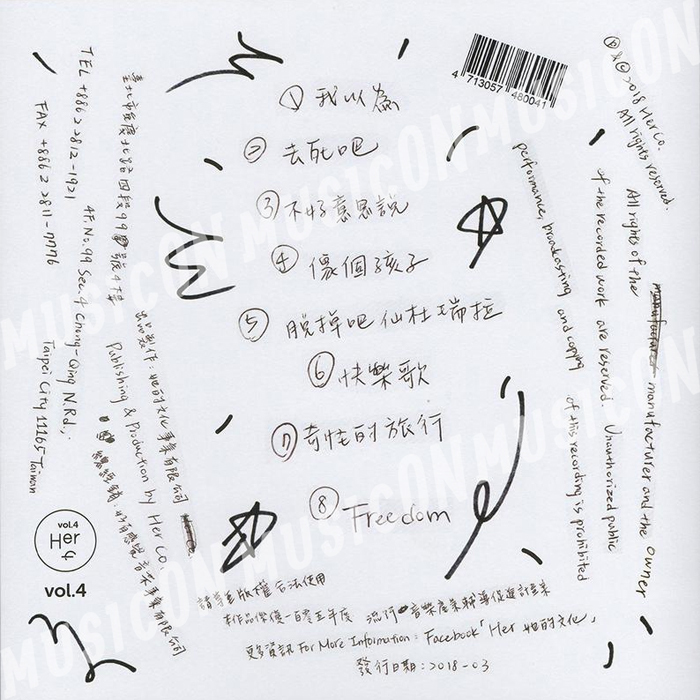 ① 我以為
② 去死吧
③ 不好意思說
④ 像個孩子
⑤ 脫掉吧仙杜瑞拉
⑥ 快樂歌
⑦ 奇怪的旅行
⑧ Freedom
4 713057 480041
℗ & © 2018 Her Co.
All rights reserved.
All rights of the
manufacturer and the owner
of the recorded work are reserved. Unauthorized public
performance, broadcasting and copying of this recording is prohibited
TEL +886 2 2812-1921
FAX +886 2 2811-7776
臺北市重慶北路四段99號4樓
4F, No.99 Sec.4 Chung-Qing N.Rd.,
Taipei City 11165 Taiwan
出品製作：她的文化事業有限公司
Publishing & Production by Her Co.
音樂事業有限公司
vol.4
Her
vol.4
請尊重版權合法使用
本作品榮獲一百零五年度 流行音樂產業輔導促進計畫案
更多資訊 For More Information：Facebook「Her 她的文化」
發行日期：2018-03
MUSICON MUSICON MUSICON
MUSICON MUSICON MUSICON
MUSICON MUSICON MUSICON